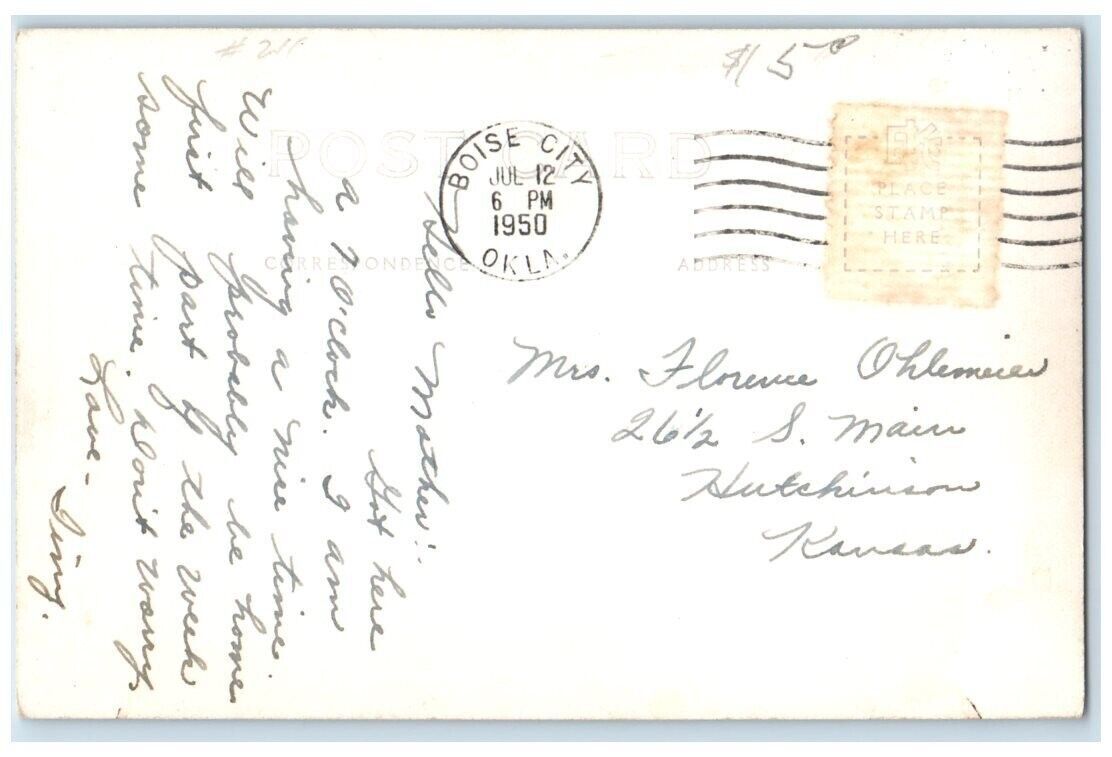 $15
POST CARD
BOISE CITY
JUL 12
6 PM
1950
OKLA.
CORRESPONDENCE
ADDRESS
EKC
PLACE
STAMP
HERE
Hello Mother!!
Got here
a 7 O'clock. I am
having a nice time.
Will probably be home
first part of the week
some time. Don't worry.
Love -
Mrs. Florence Ohlemeier
26½ S. Main
Hutchinson
Kansas.